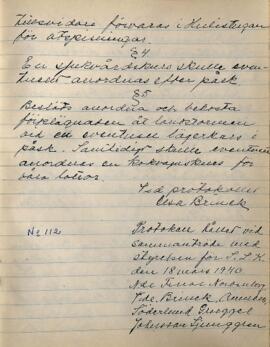 tillsvidare förvaras i Hulestugan
för utspisningar.
§ 4
En sjukvårdskurs skulle even-
tuellt anordnas efter påsk.
§ 5
Beslöts anordna och bekosta
förplägnaden åt lanstormen
vid en eventuell lägerkurs i
påsk. Samtidigt skulle eventuellt
anordnas en kokvagnskurs för
våra lottor.
Vid protokollet
Elsa Brinck
No 112
Protokoll fört vid
sammanträde med
styrelsen för S.L.K.
den 18 mars 1940
Nde Fruar
Vde. Brinck,
Söderlund
Johansson Ljunggren